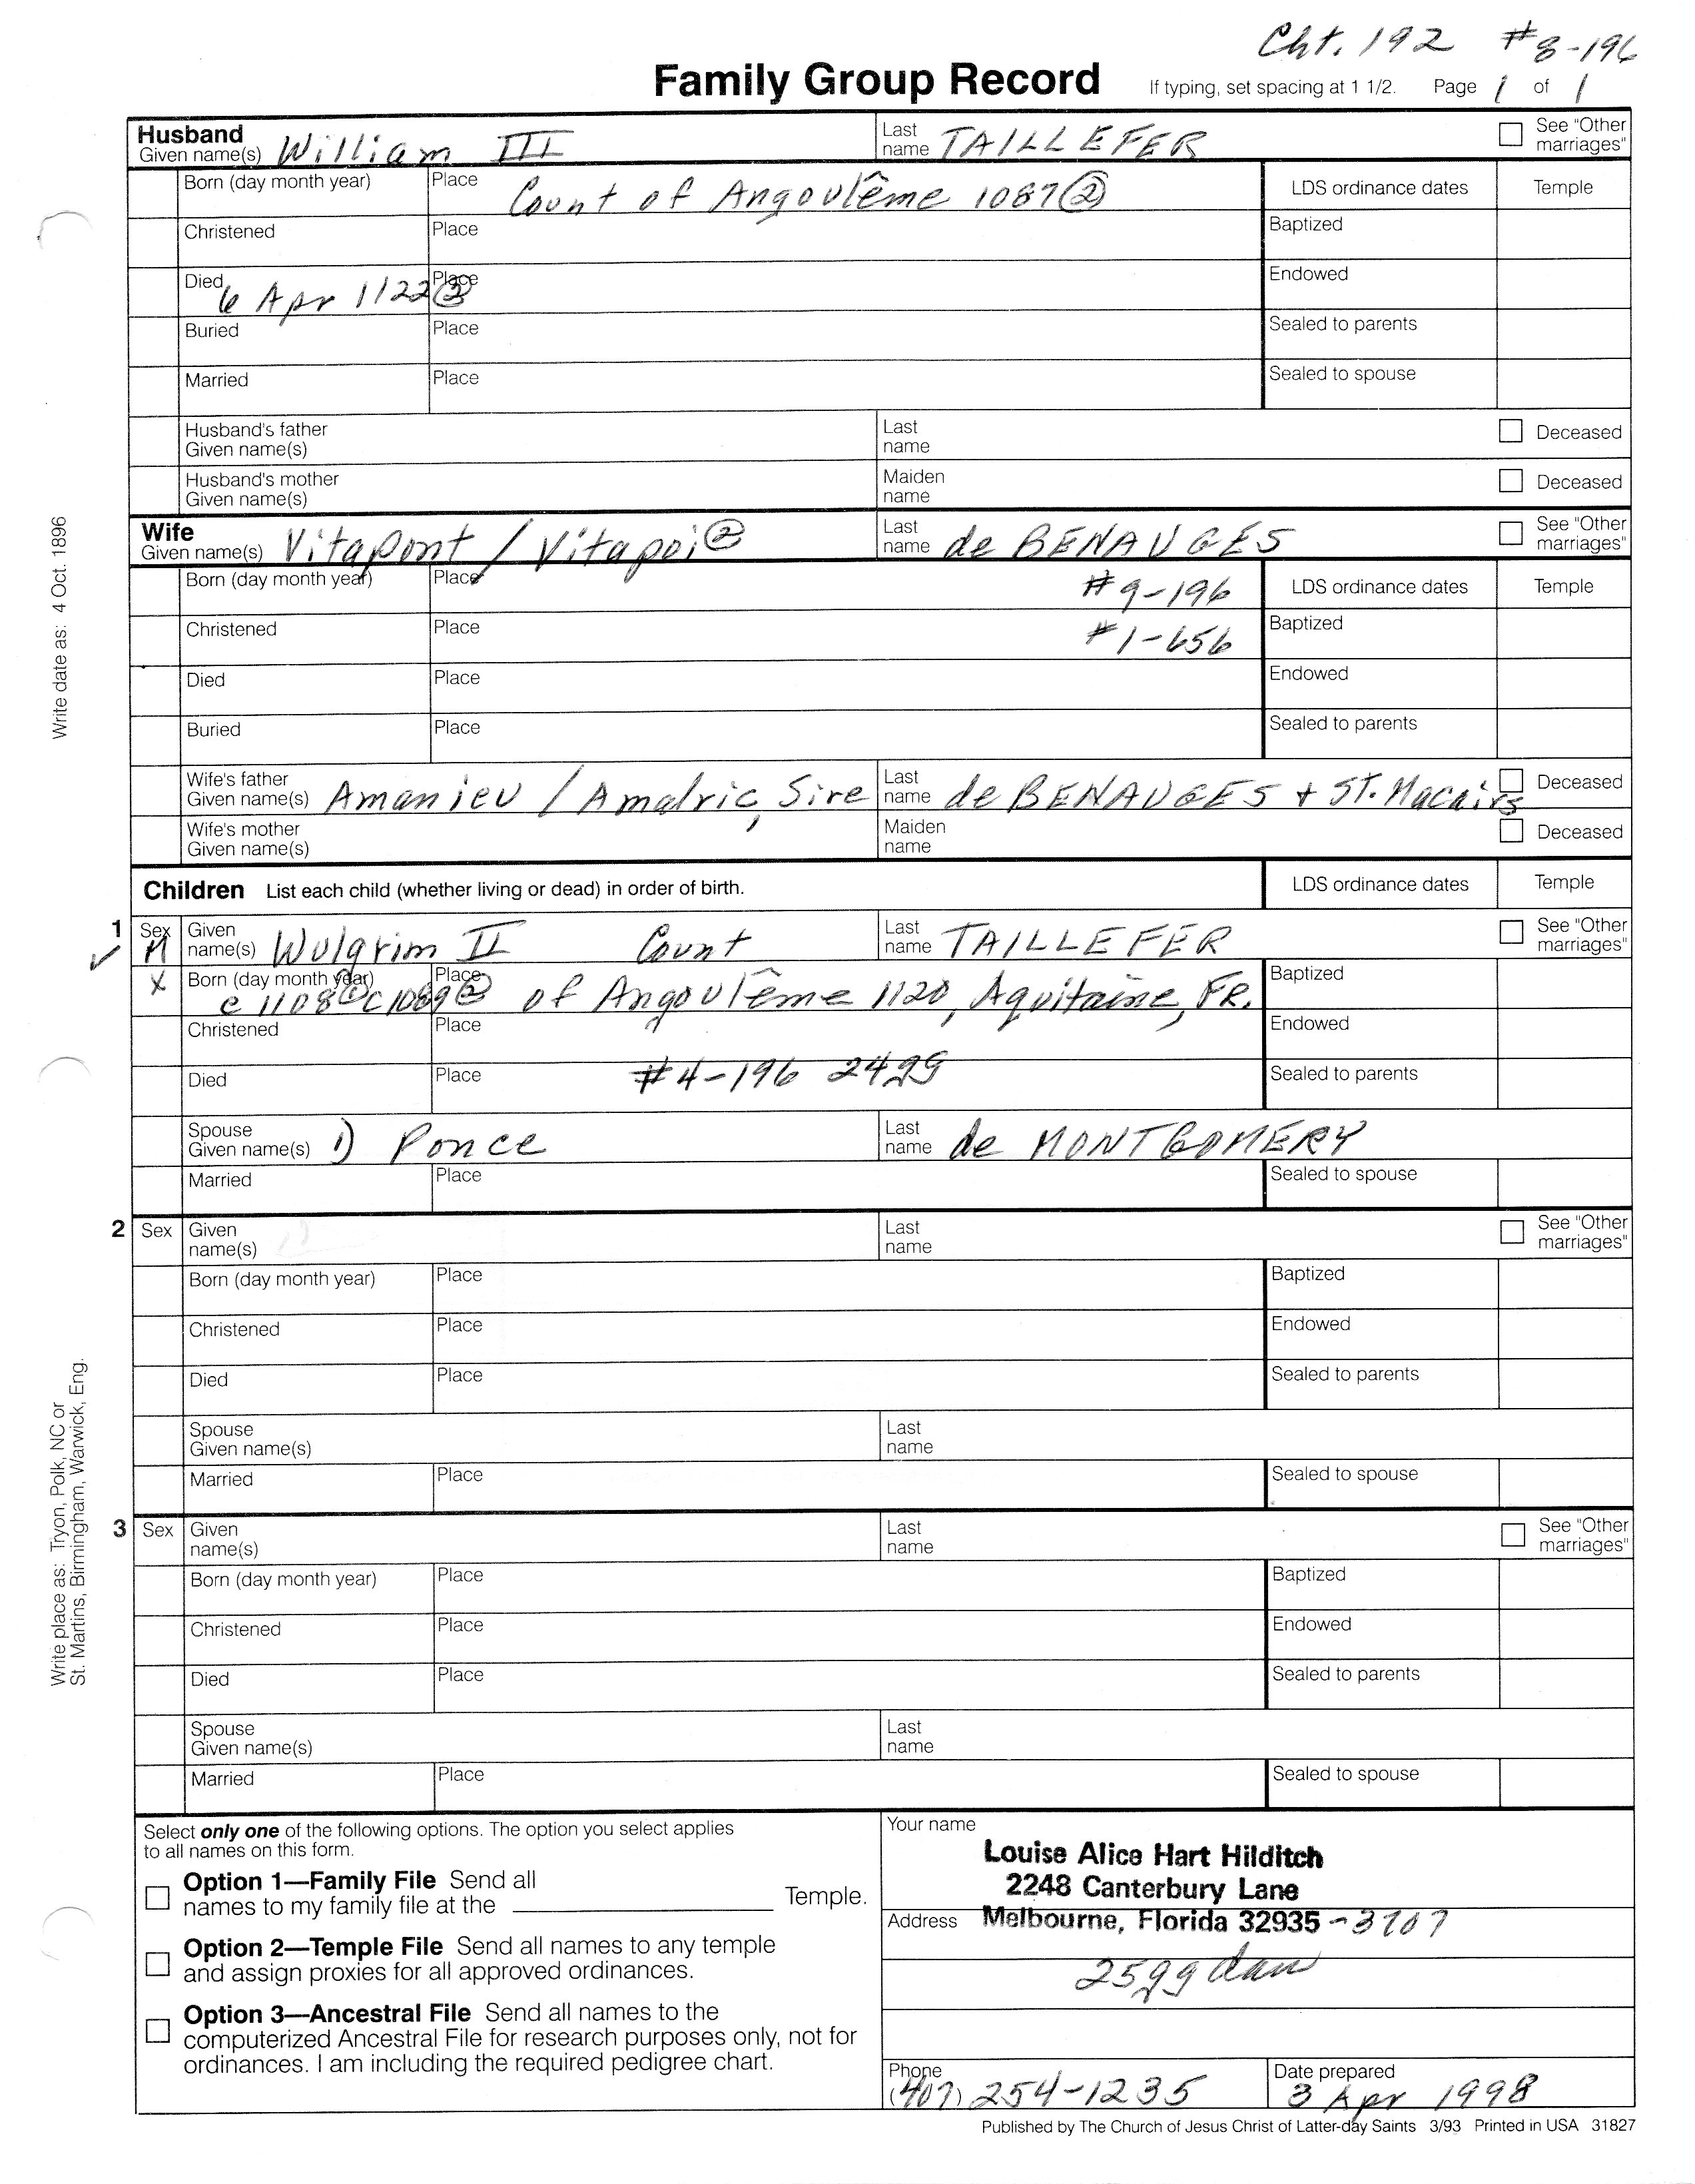 Cht. 192 #8-196
Family Group Record If typing, set spacing at 1 1/2. Page 1 of 1
Husband
Given name(s) William III Last name TAILLEFER See "Other marriages"
Born (day month year) Place Count of Angoulême 1087 ② LDS ordinance dates Temple
Christened Place Baptized
Died 6 Apr 1122 ② Place Endowed
Buried Place Sealed to parents
Married Place Sealed to spouse
Husband's father Given name(s) Last name Deceased
Husband's mother Given name(s) Maiden name Deceased
Wife
Given name(s) Vitapont / Vitapoi ② Last name de BENAUGES See "Other marriages"
Born (day month year) Place #9-196 LDS ordinance dates Temple
Christened Place #1-656 Baptized
Died Place Endowed
Buried Place Sealed to parents
Wife's father Given name(s) Amanieu / Amalric, Sire Last name de BENAUGES + ST. Macairs Deceased
Wife's mother Given name(s) Maiden name Deceased
Children List each child (whether living or dead) in order of birth. LDS ordinance dates Temple
1 Sex M Given name(s) Wulgrim II Count Last name TAILLEFER See "Other marriages"
X Born (day month year) c 1108 ① c 1089 ② Place of Angoulême 1120, Aquitaine, FR. Baptized
Christened Place Endowed
Died Place #4-196 24gg Sealed to parents
Spouse Given name(s) 1) Ponce Last name de MONTGOMERY
Married Place Sealed to spouse
2 Sex Given name(s) Last name See "Other marriages"
Born (day month year) Place Baptized
Christened Place Endowed
Died Place Sealed to parents
Spouse Given name(s) Last name
Married Place Sealed to spouse
3 Sex Given name(s) Last name See "Other marriages"
Born (day month year) Place Baptized
Christened Place Endowed
Died Place Sealed to parents
Spouse Given name(s) Last name
Married Place Sealed to spouse
Select only one of the following options. The option you select applies
to all names on this form.
Option 1—Family File Send all
names to my family file at the Temple.
Option 2—Temple File Send all names to any temple
and assign proxies for all approved ordinances.
Option 3—Ancestral File Send all names to the
computerized Ancestral File for research purposes only, not for
ordinances. I am including the required pedigree chart.
Your name
Louise Alice Hart Hilditch
2248 Canterbury Lane
Address Melbourne, Florida 32935 -3707
25gg dau
Phone (407) 254-1235 Date prepared 3 Apr 1998
Published by The Church of Jesus Christ of Latter-day Saints 3/93 Printed in USA 31827
Write date as: 4 Oct. 1896
Write place as: Tryon, Polk, NC or
St. Martins, Birmingham, Warwick, Eng.